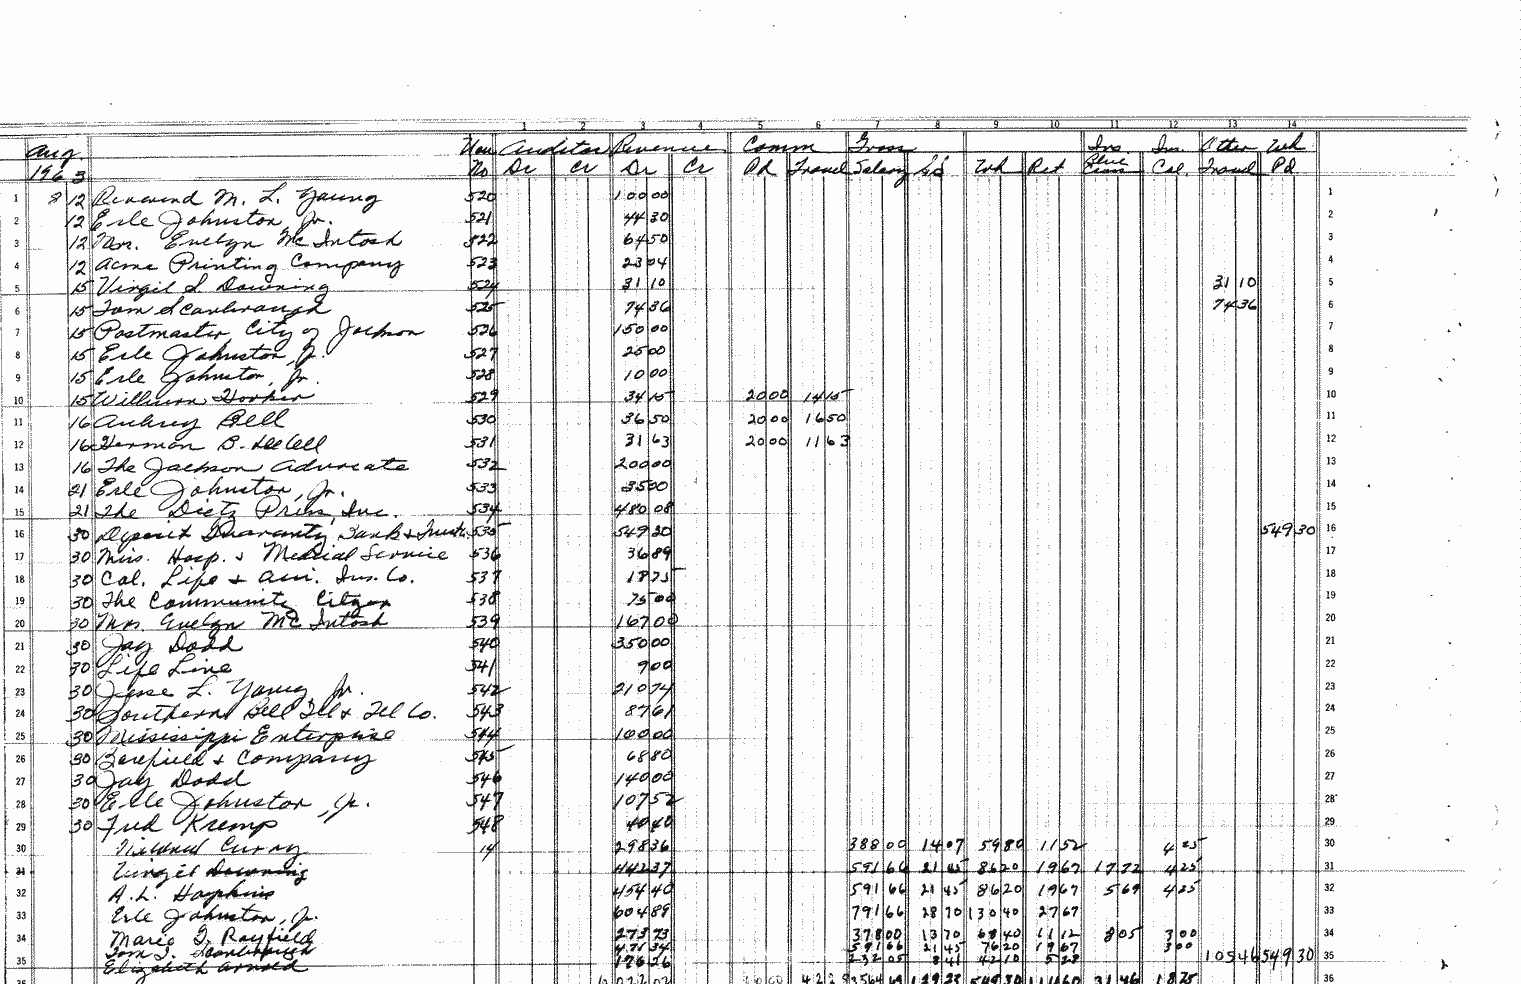 1 2 3 4 5 6 7 8 9 10 11 12 13 14
Aug. Auditor Revenue Comm Gross Ins. Ins. Other Wh
1963 No Dr Cr Dr Cr Pd Travel Salary S.S. Wh Ret Blue Cross Cal. Travel Pd
1 8 12 Reverend M. L. Young 520 100 00 1
2 12 Erle Johnston Jr. 521 44 30 2
3 12 Mrs. Evelyn McIntosh 522 64 50 3
4 12 Acme Printing Company 523 23 04 4
5 15 Virgil S. Downing 524 31 10 31 10 5
6 15 Tom Scarbrough 525 74 36 74 36 6
7 15 Postmaster, City of Jackson 526 150 00 7
8 15 Erle Johnston Jr. 527 25 00 8
9 15 Erle Johnston, Jr. 528 10 00 9
10 15 William Hooker 529 34 15 20 00 14 15 10
11 16 Aubrey Bell 530 36 50 20 00 16 50 11
12 16 Herman B. DeCell 531 31 63 20 00 11 63 12
13 16 The Jackson Advocate 532 200 00 13
14 21 Erle Johnston, Jr. 533 35 00 14
15 21 The Dietz Press, Inc. 534 480 08 15
16 30 Deposit Guaranty Bank & Trust 535 549 30 549 30 16
17 30 Miss. Hosp. & Medical Service 536 36 89 17
18 30 Cal. Life & Am. Ins. Co. 537 18 25 18
19 30 The Community Citizen 538 75 00 19
20 30 Mrs. Evelyn McIntosh 539 167 00 20
21 30 Jay Dodd 540 350 00 21
22 30 Life Line 541 9 00 22
23 30 Jesse L. Young, Jr. 542 210 74 23
24 30 Southern Bell Tel & Tel Co. 543 87 61 24
25 30 Mississippi Enterprise 544 100 00 25
26 30 Barefield & Company 545 68 80 26
27 30 Jay Dodd 546 140 00 27
28 30 Erle Johnston, Jr. 547 107 52 28
29 30 Fred Kremp 548 40 40 29
30 Curry 14 298 36 388 00 14 07 59 80 11 52 4 25 30
31 Virgil Downing 442 37 591 66 21 45 86 20 19 67 17 72 4 25 31
32 A.L. Hopkins 454 40 591 66 21 45 86 20 19 67 5 69 4 25 32
33 Erle Johnston, Jr. 604 89 791 66 28 70 130 40 27 67 33
34 Marie G. Rayfield 273 73 378 00 13 70 68 40 11 12 8 05 3 00 34
Tom J. Scarbrough 471 34 591 66 21 45 76 20 19 67 3 00
35 Elizabeth Arnold 176 26 232 05 8 41 42 10 5 28 105 46 549 30 35
36